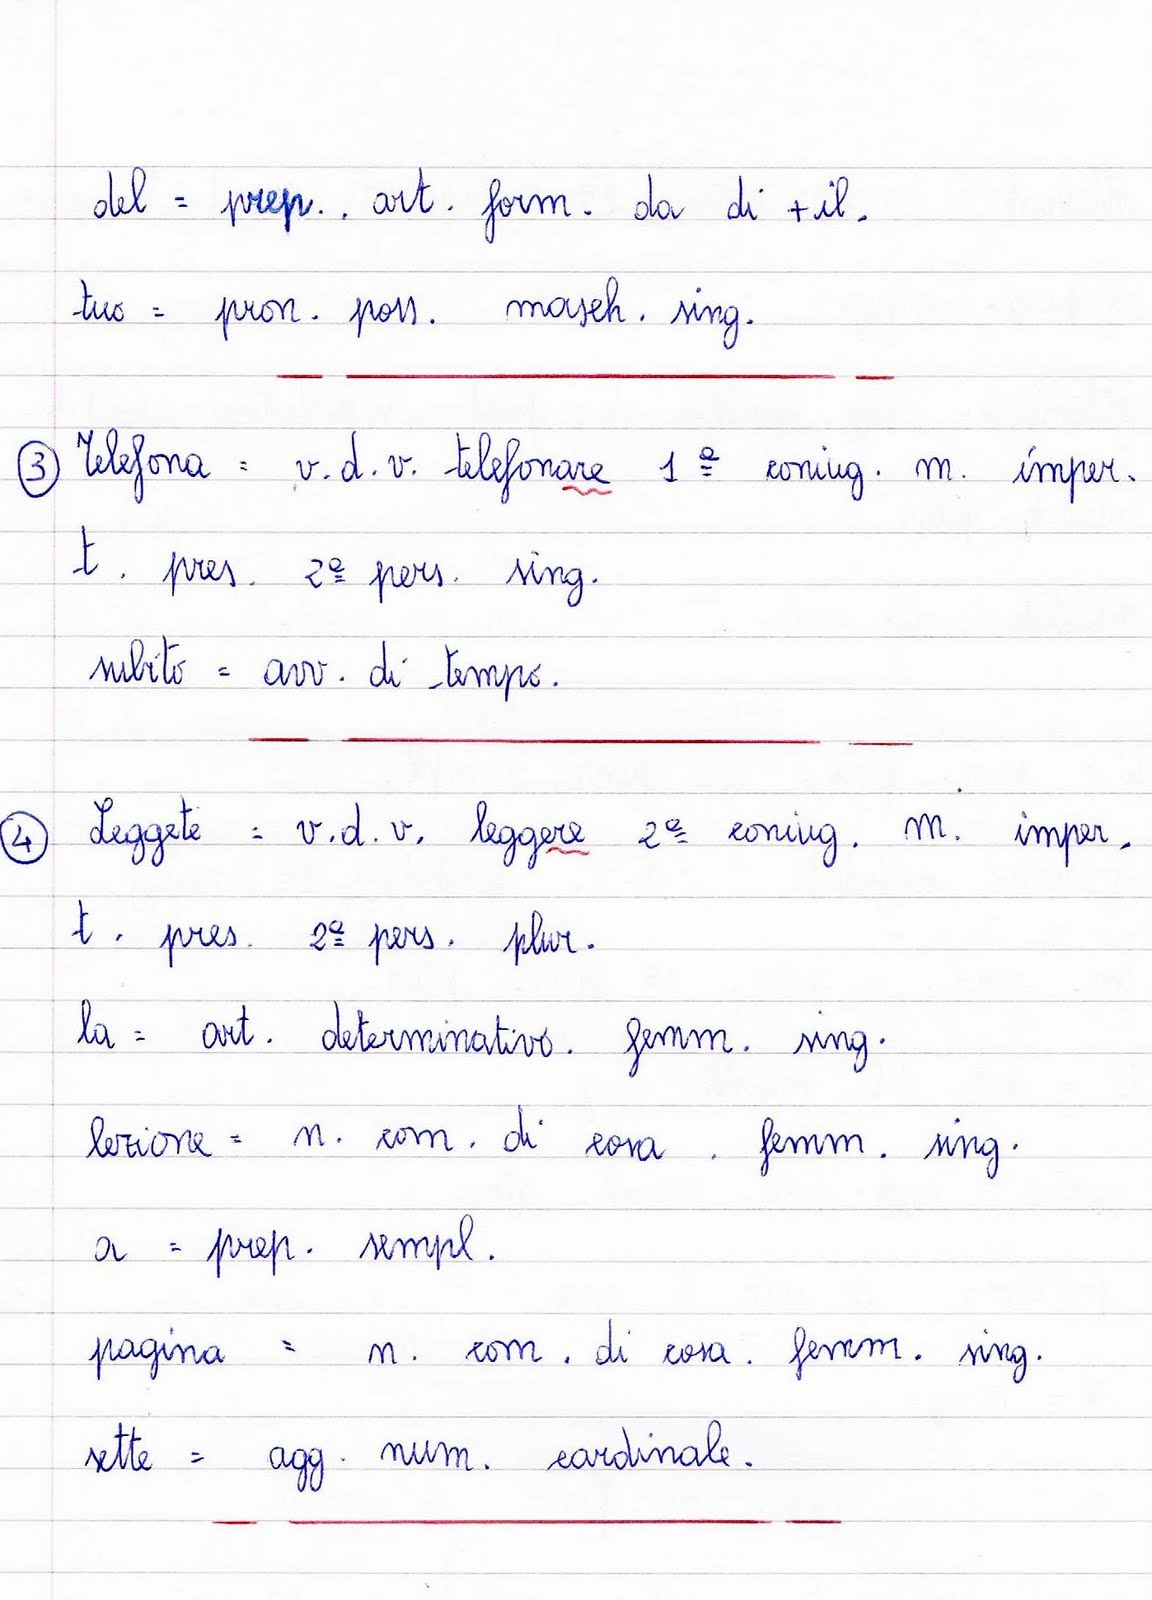 del = prep. . art. form. da di + il.
tuo = pron. poss. masch. sing.
③ Telefona = v. d. v. telefonare 1ª coniug. m. imper.
t. pres. 2ª pers. sing.
subito = avv. di tempo.
④ Leggete = v. d. v. leggere 2ª coniug. m. imper.
t. pres. 2ª pers. plur.
la = art. determinativo. femm. sing.
lezione = n. com. di cosa . femm. sing.
a = prep. sempl.
pagina = n. com. di cosa. femm. sing.
sette = agg. num. cardinale.